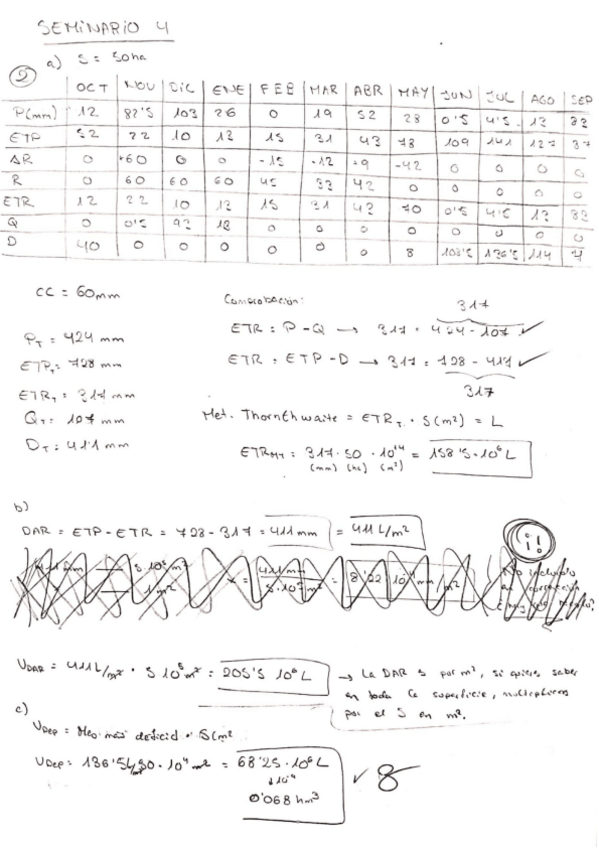 SEMINARIO 4
2
a) S = 50ha
OCT NOV DIC ENE FEB MAR ABR MAY JUN JUL AGO SEP
P(mm) 12 82'5 103 26 0 19 52 28 0'5 4'5 13 83
ETP 52 22 10 13 15 31 43 78 109 141 127 87
ΔR 0 +60 0 0 -15 -12 +9 -42 0 0 0 0
R 0 60 60 60 45 33 42 0 0 0 0 0
ETR 12 22 10 13 15 31 43 70 0'5 4'5 13 83
Q 0 0'5 93 13 0 0 0 0 0 0 0 0
D 40 0 0 0 0 0 0 8 108'5 136'5 114 4
CC = 60mm
Comprobación:
317
PT = 424 mm
ETR = P - Q → 317 = 424 - 107 ✓
ETPT = 728 mm
ETR = ETP - D → 317 = 728 - 411 ✓
ETRT = 317 mm
317
QT = 107 mm
Met. Thornthwaite = ETRT · S(m²) = L
DT = 411 mm
ETRMT = 317 · 50 · 10^4 = 158'5 · 10⁶ L
(mm) (ha) (m²)
b)
DAR = ETP - ETR = 728 - 317 = 411 mm = 411 L/m²
¡!
VDAR = 411 L/m² · 5 10⁵ m² = 205'5 10⁶ L → La DAR s por m², si quieres saber
en toda la superficie, multiplicas
por el S en m².
c)
VDep = Mes más deficid · S(m²
VDep = 136'5 · 50 · 10⁴ m² = 68'25 · 10⁶ L
0'068 hm³
✓ 8